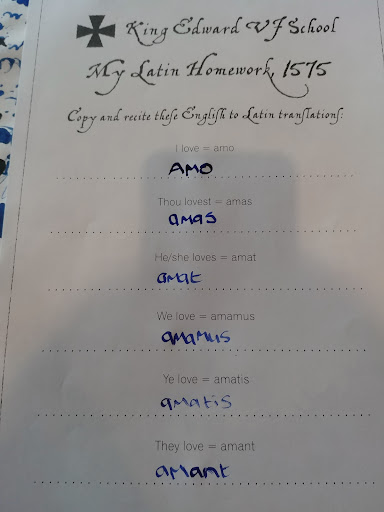 King Edward VI School
My Latin Homework, 1575
Copy and recite these English to Latin translations:
I love = amo
AMO
Thou lovest = amas
amas
He/she loves = amat
amat
We love = amamus
amamus
Ye love = amatis
amatis
They love = amant
amant